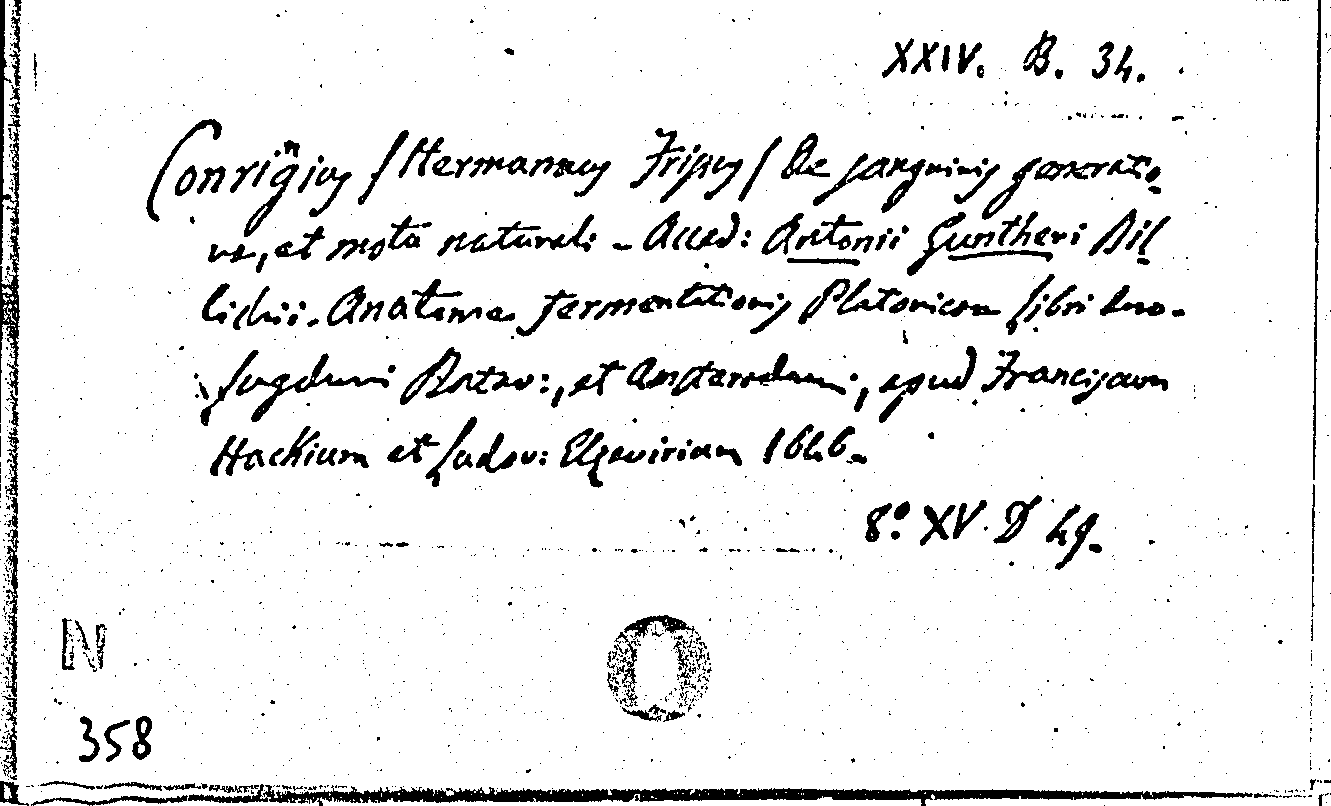 XXIV. B. 34.
Conrigius /Hermannus Frisius/ De sanguinis generatio-
ne, et motu naturali - Acced: Antonii Guntheri Bil-
lichii. Anatome fermentationis Platonicae libri duo.
Lugduni Batav:, et Amsterodami, apud Franciscum
Hackium et Ludov: Elzevirium 1646.
8.° XV. D 49.
N
358